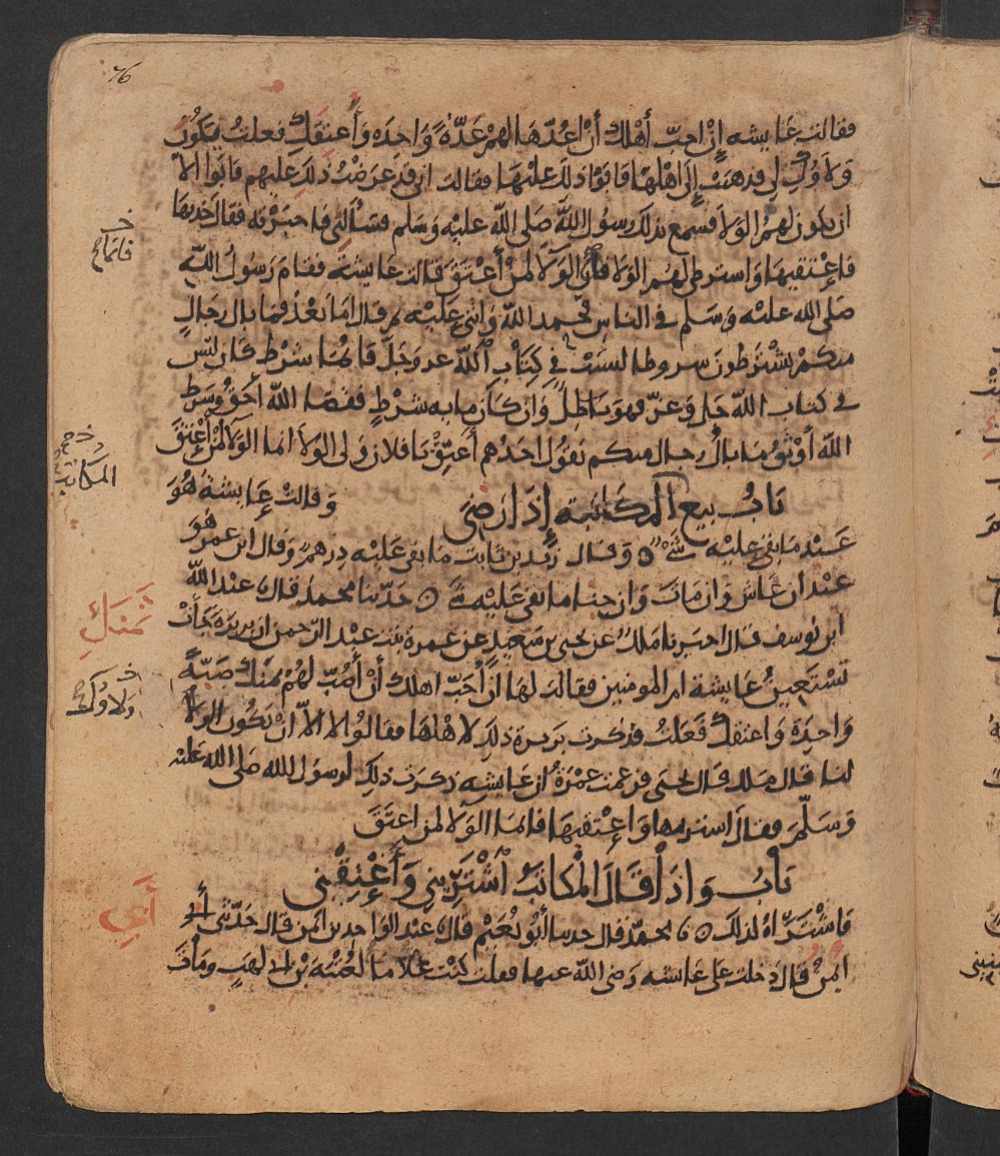 76
فقالت عايشه إن احب أهلك أن اعدها لهم عدة واحده وأعتقك فعلت فيكون
ولاوك لي فذهبت إلى اهلها فابوا ذلك عليها فقالت اني قد عرضت ذلك عليهم فابوا الا
ان يكون لهم الولا فسمع بذلك رسول الله صلى الله عليه وسلم فسألني فاخبرته فقال خذيها
فاعتقيها واشترطي لهم الولا فان الولا لمن أعتق قالت عايشة فقام رسول الله
صلى الله عليه وسلم في الناس فحمد الله واثنى عليه ثم قال اما بعد فما بال رجال
منكم يشترطون شروطا ليست في كتاب الله عز وجل فايما شرط كان ليس
في كتاب الله جل وعز فهو باطل وان كان مايه شرط فقضا الله احق وشرط
الله أوثق ما بال رجال منكم يقول احدهم أعتق يا فلان ولي الولا انما الولا لمن أعتق
باب بيع المكاتبة إذا رضي وقالت عايشة هو
عبد ما بقي عليه شي وقال زيد بن ثابت ما بقي عليه درهم وقال ابن عمر هو
عبد ان عاش وان مات وان جنا ما بقي عليه حدثنا محمد قال عبد الله
ابن يوسف قال اخبرنا ملك عن يحيى بن سعيد عن عمرة بنت عبد الرحمن ان بريرة جات
تستعين عايشة ام المومنين فقالت لها ان أحب اهلك أن أصب لهم ثمنك صبة
واحدة واعتقك فعلت فذكرت بريرة ذلك لاهلها فقالوا لا الا ان يكون الولا
لنا قال ملك قال يحيى فزعمت عمرة ان عايشه ذكرت ذلك لرسول الله صلى الله عليه
وسلم فقال اشتريها واعتقيها فانما الولا لمن اعتق
باب واذا قال المكاتب اشترني وأعتقني
فاشتراه لذلك محمد قال حدثنا أبو نعيم قال عبد الواحد بن ايمن قال حدثني أبي
ايمن قال دخلت على عايشه رضي الله عنها فقلت كنت غلاما لعتبة بن ابي لهب ومات
فانما
المكاتب
ثمنك
ولاوك
أبي